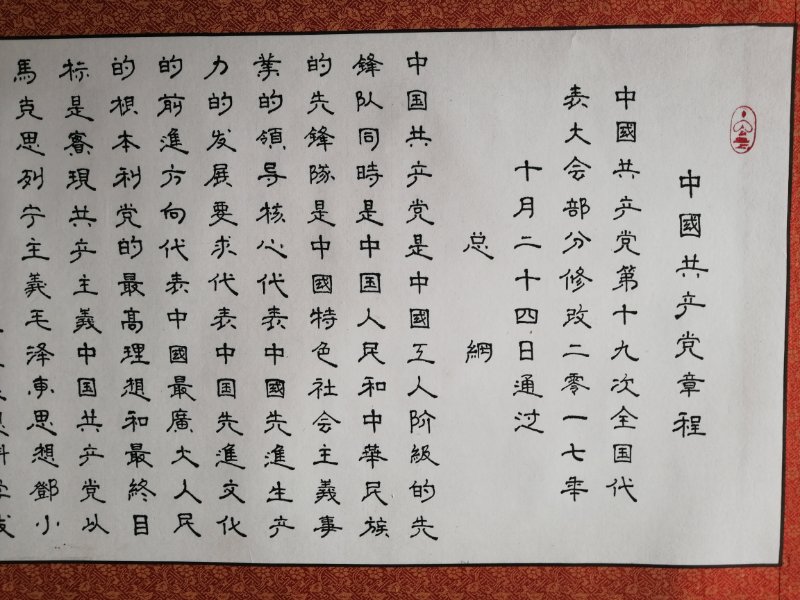 中國共产党章程
中國共产党第十九次全国代
表大会部分修改二零一七年
十月二十四日通过
总 網
中国共产党是中國工人阶级的先
鋒队同時是中国人民和中華民族
的先鋒隊是中國特色社会主義事
業的領导核心代表中國先進生产
力的发展要求代表中国先進文化
的前進方向代表中國最廣大人民
的根本利党的最高理想和最終目
标是實現共产主義中国共产党以
馬克思列宁主義毛泽東思想鄧小